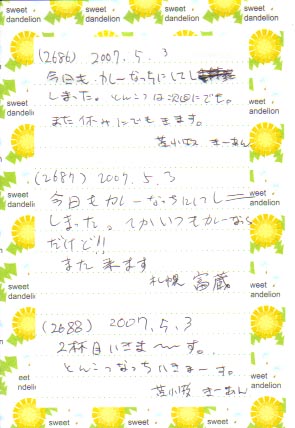 sweet dandelion
(2686) 2007. 5. 3
今日も カレーなっちにしてし
しまった。とんこつは次回にでも。
また休みにでもきます。
苫小牧 きーあん
(2687) 2007. 5. 3
今日もカレーなっちにしてし
しまった。てかいつもカレーなっち
だけど!!
また 来ます
札幌 富蔵
(2688) 2007. 5. 3
2杯目いきま〜〜す。
とんこつなっちいきまーす。
苫小牧 きーあん
sweet dandelion